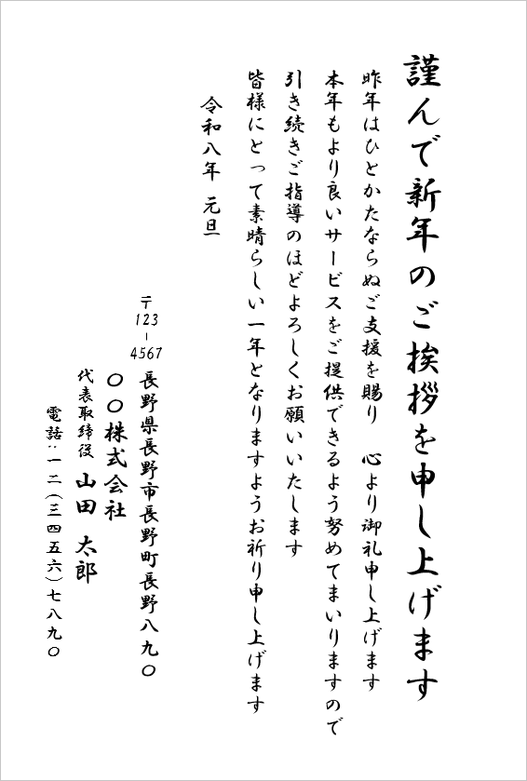 謹んで新年のご挨拶を申し上げます
昨年はひとかたならぬご支援を賜り　心より御礼申し上げます
本年もより良いサービスをご提供できるよう努めてまいりますので
引き続きご指導のほどよろしくお願いいたします
皆様にとって素晴らしい一年となりますようお祈り申し上げます
令和八年　元旦
〒123-4567　長野県長野市長野町長野八九〇
〇〇株式会社
代表取締役　山田　太郎
電話：一二(三四五六)七八九〇